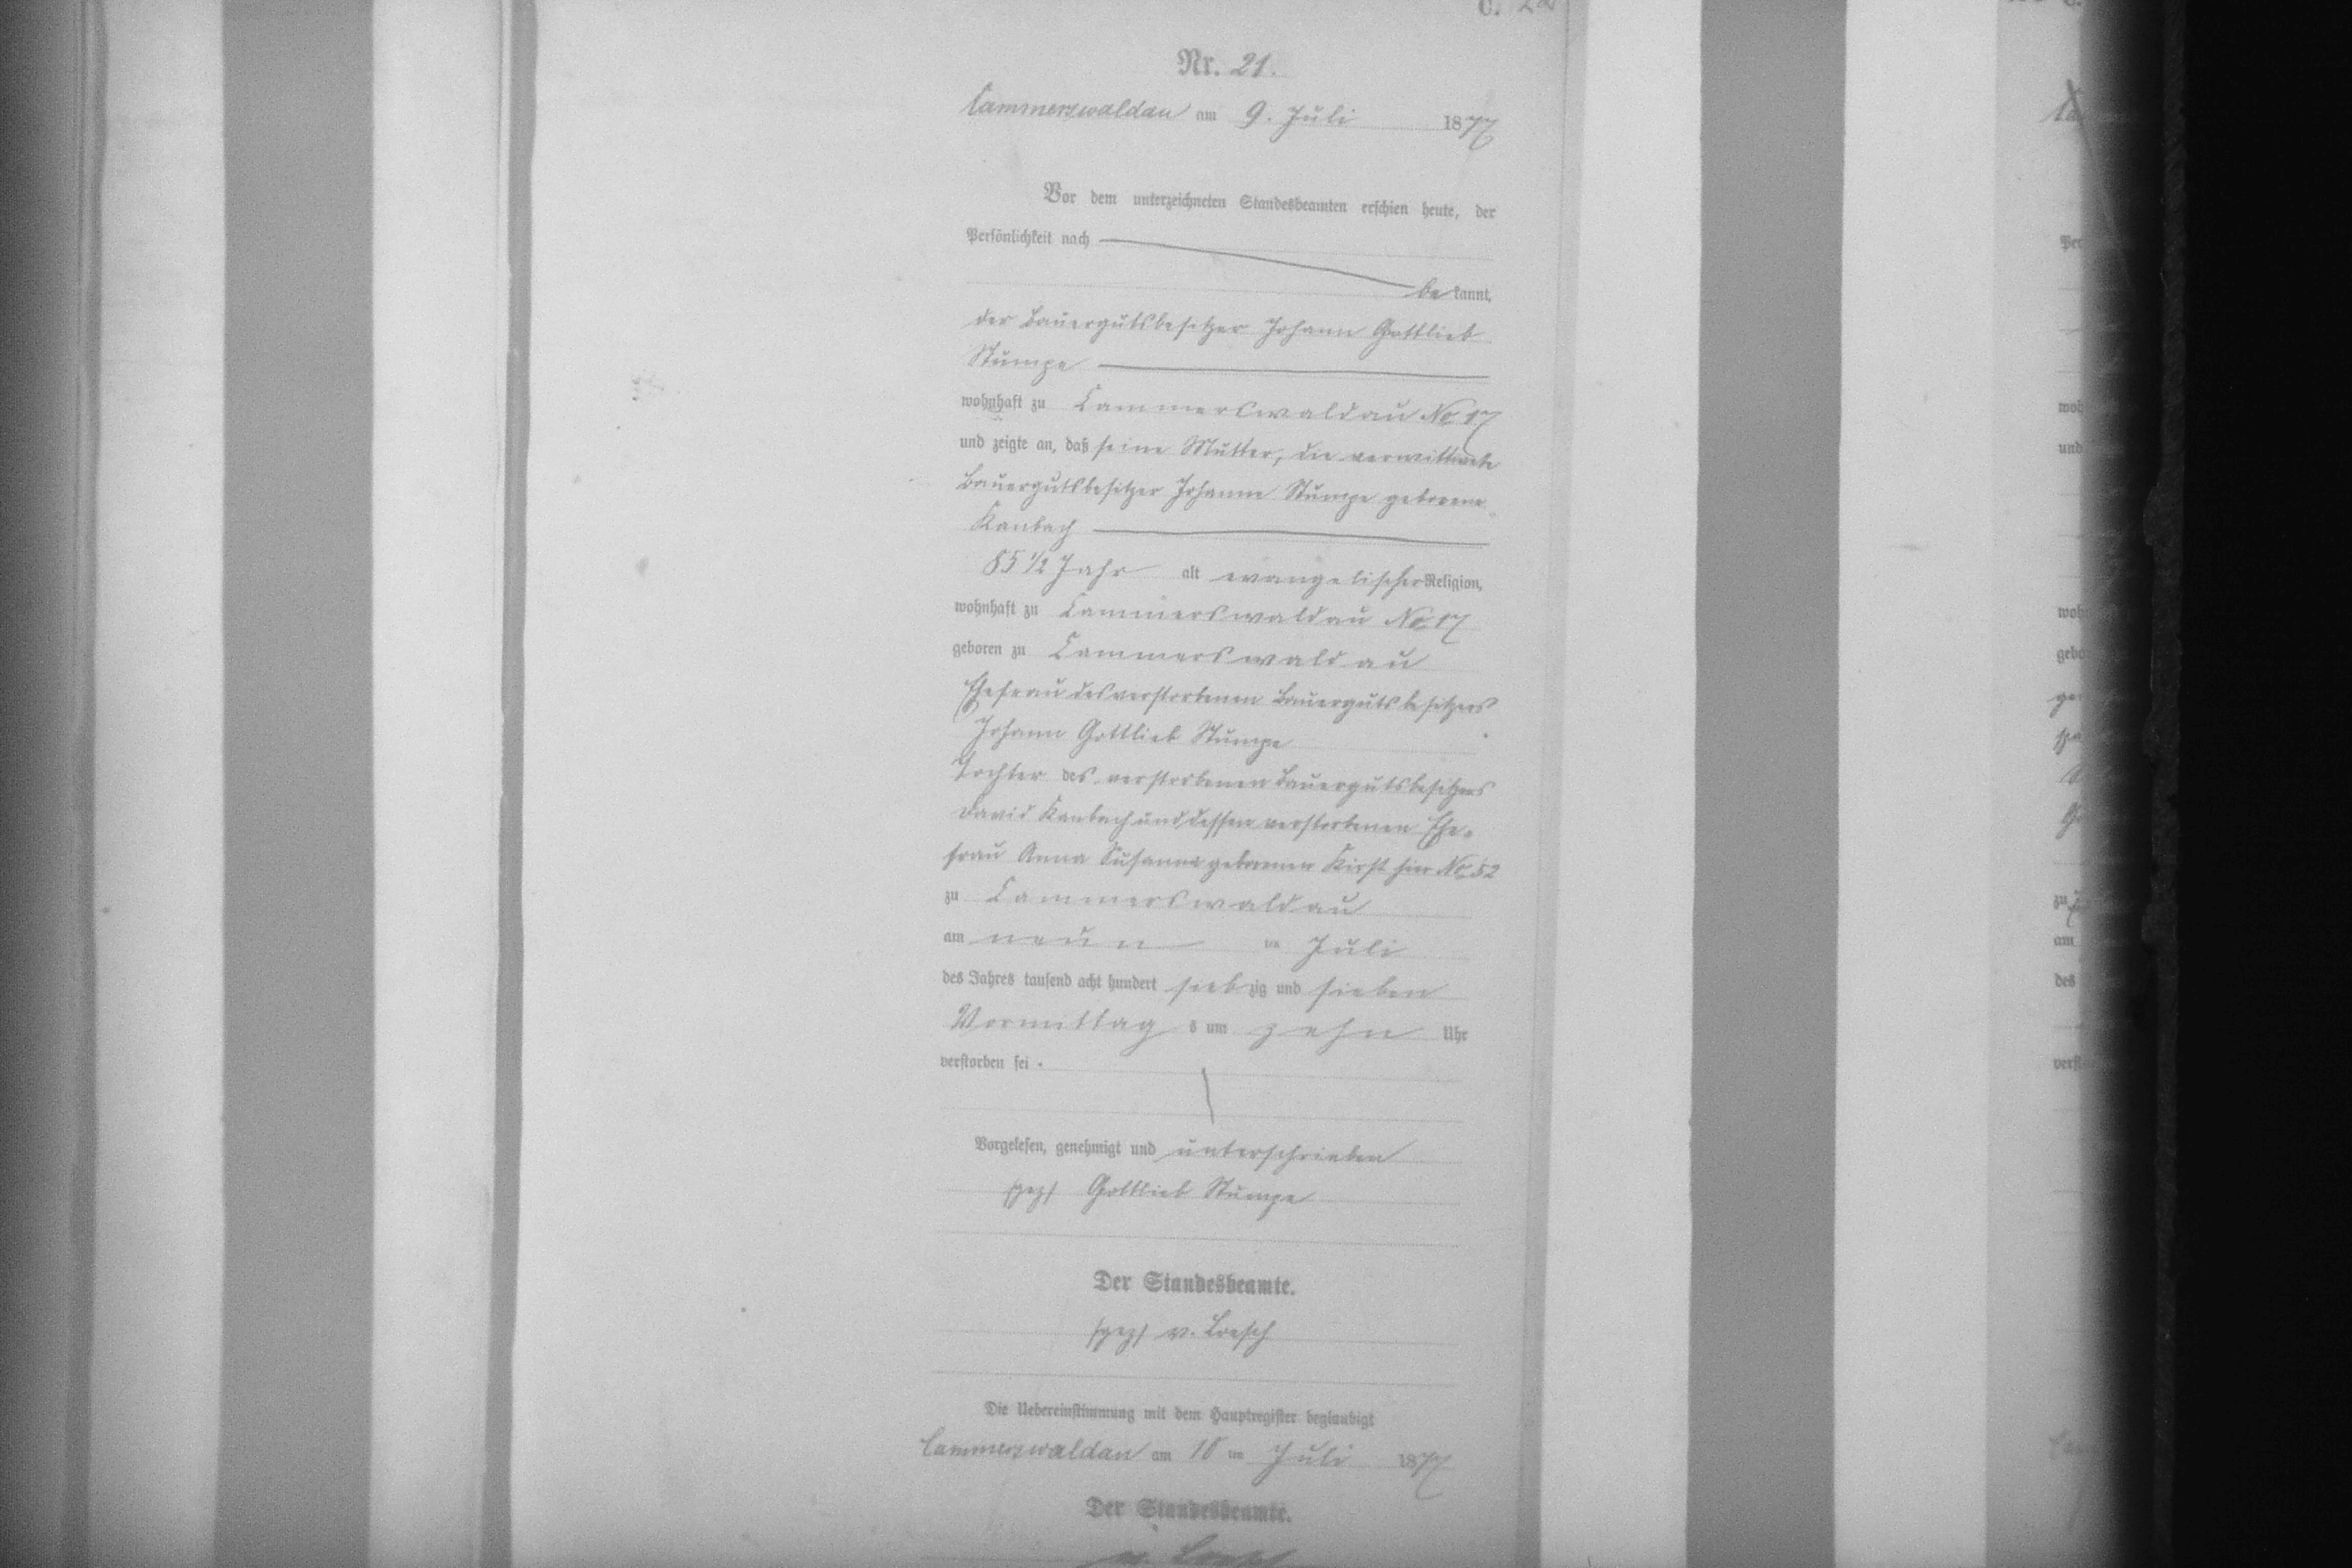 C.
Nr. 21.
Cammerswaldau am 9. Juli 1877
Vor dem unterzeichneten Standesbeamten erschien heute, der
Persönlichkeit nach
bekannt,
der Bauergutsbesitzer Johann Gottlieb
Stumpe
wohnhaft zu Cammerswaldau No 17
und zeigte an, daß seine Mutter, die verwittwete
Bauergutsbesitzer Johanne Stumpe geborene
Kaubach
85 1/2 Jahr alt evangelischer Religion,
wohnhaft zu Cammerswaldau No 17
geboren zu Cammerswaldau
Ehefrau des verstorbenen Bauergutsbesitzers
Johann Gottlieb Stumpe
Tochter des verstorbenen Bauergutsbesitzers
David Kaubach und dessen verstorbenen Ehe-
frau Anna Susanna geborenen Kirst hier No 52
zu Cammerswaldau
am neun ten Juli
des Jahres tausend acht hundert siebzig und sieben
Vormittags um zehn Uhr
verstorben sei.
Vorgelesen, genehmigt und unterschrieben
(gez) Gottlieb Stumpe
Der Standesbeamte.
(gez) v. Loesch
Die Uebereinstimmung mit dem Hauptregister beglaubigt
Cammerswaldau am 10 ten Juli 1877
Der Standesbeamte.
v. Loesch